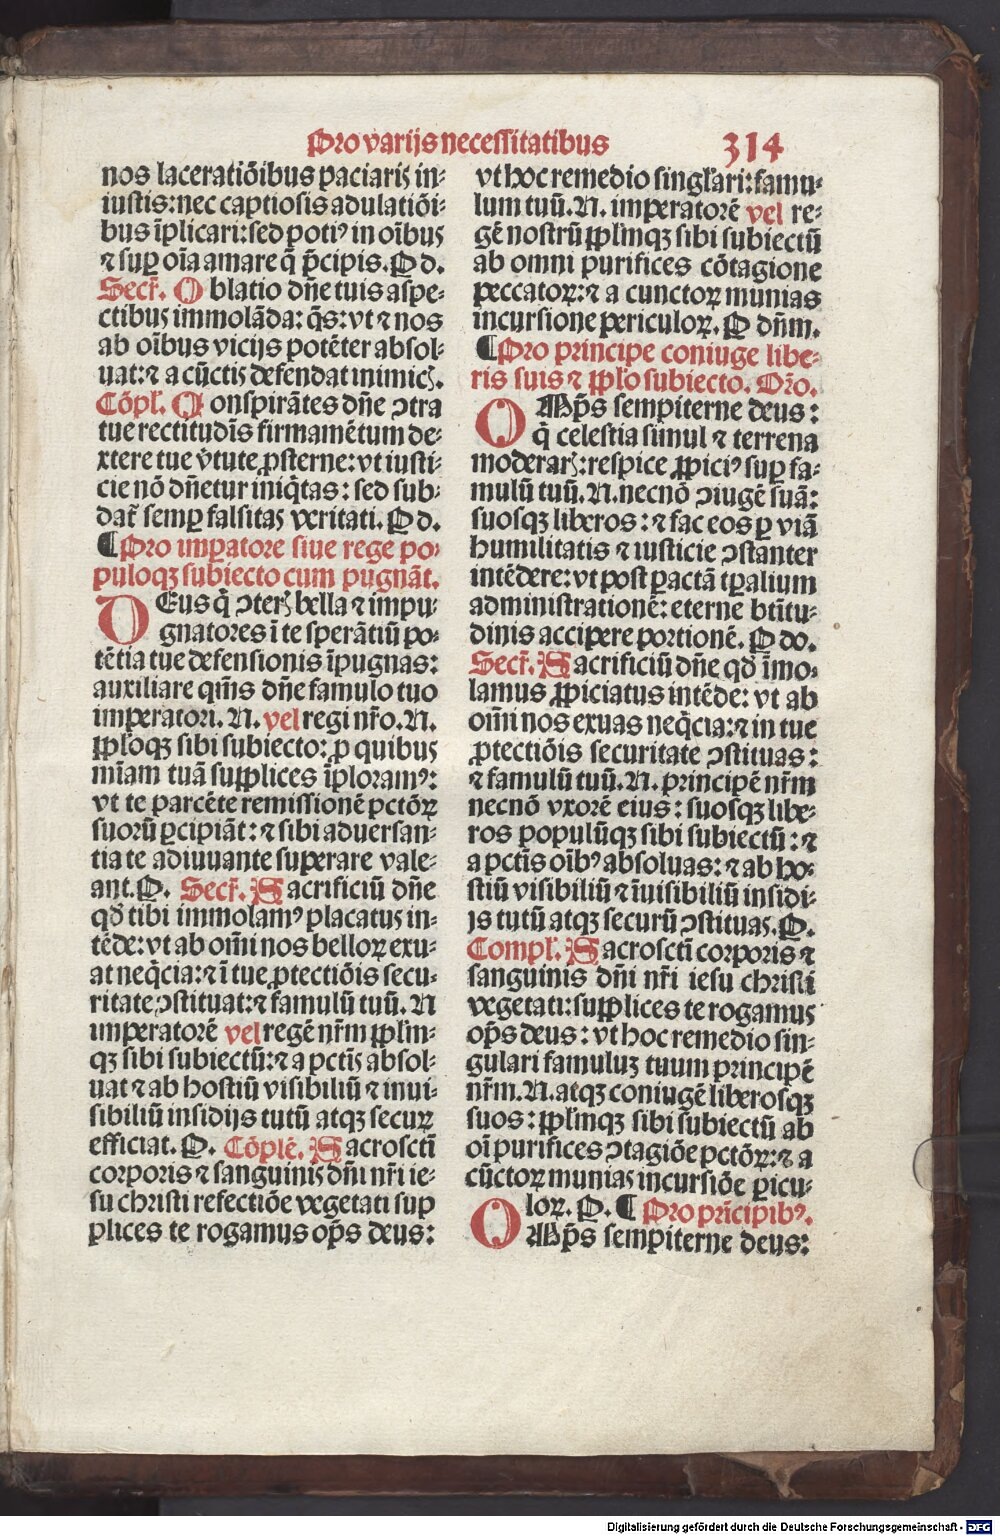 Pro varijs necessitatibus 314
nos laceratiõibus paciaris in⸗
iustis: nec captiosis adulatiõi⸗
bus ĩplicari: sed potiꝰ in oĩbus
⁊ suꝑ oĩa amare q̃ p̃cipis. P d.
Secr̃. Oblatio dñe tuis aspe⸗
ctibus immolãda: q̃s: vt ⁊ nos
ab oĩbus vicijs potẽter absol⸗
uat: ⁊ a cũctis defendat inimicꝭ.
Cõpl̃. Conspirãtes dñe ↄtra
tue rectitudĩs firmamẽtum de⸗
xtere tue v̾tute ꝓsterne: vt iusti⸗
cie nõ dñetur iniq̃tas: sed sub⸗
dat̃ semꝑ falsitas veritati. P d.
¶ Pro imꝑatore siue rege po⸗
puloqꝫ subiecto cum pugnãt.
DEus q̃ ↄterꝭ bella ⁊ impu⸗
gnatores ĩ te sperãtiũ po⸗
tẽtia tue defensionis ĩpugnas:
auxiliare q̃ms dñe famulo tuo
imperatori. N. vel regi nr̃o. N.
pp̃loqꝫ sibi subiecto: ꝓ quibus
mĩam tuã supplices ĩploramꝰ:
vt te parcẽte remissionẽ pctõꝝ
suorũ ꝑcipiãt: ⁊ sibi aduersan⸗
tia te adiuuante superare vale⸗
ant. P. Secr̃. Sacrificiũ dñe
qđ tibi immolamꝰ placatus in⸗
tẽde: vt ab om̃i nos belloꝝ exu⸗
at neq̃cia: ⁊ ĩ tue ꝓtectiõis secu⸗
ritate ↄstituat: ⁊ famulũ tuũ. N
imperatorẽ vel regẽ nr̃m pp̃lm̃⸗
qꝫ sibi subiectũ: ⁊ a pctĩs absol⸗
uat ⁊ ab hostiũ visibiliũ ⁊ inui⸗
sibiliũ insidijs tutũ atqꝫ secuꝝ
efficiat. P. Cõplẽ. Sacrosctĩ
corporis ⁊ sanguinis dñi nr̃i ie⸗
su christi refectiõe vegetati sup
plices te rogamus op̃s deus:
vt hoc remedio singl̃ari: famu⸗
lum tuũ. N. imperatorẽ vel re⸗
gẽ nostrũ pp̃lm̃qꝫ sibi subiectũ
ab omni purifices cõtagione
peccatoꝝ: ⁊ a cunctoꝝ munias
incursione periculoꝝ. P dñm.
¶ Pro principe coniuge libe⸗
ris suis ⁊ pp̃lo subiecto. Or̃o.
OMp̃s sempiterne deus:
q̃ celestia simul ⁊ terrena
moderarꝭ: respice ꝓpiciꝰ suꝑ fa⸗
mulũ tuũ. N. necnõ ↄiugẽ suã:
suosqꝫ liberos: ⁊ fac eos ꝑ viã
humilitatis ⁊ iusticie ↄstanter
intẽdere: vt post ꝑactã tꝑalium
administrationẽ: eterne btĩtu⸗
dinis accipere portionẽ. P do.
Secr̃. Sacrificiũ dñe qđ ĩmo⸗
lamus ꝓpiciatus intẽde: vt ab
om̃i nos exuas neq̃cia: ⁊ in tue
ꝓtectiõis securitate ↄstituas:
⁊ famulũ tuũ. N. principẽ nr̃m
necnõ vxorẽ eius: suosqꝫ libe⸗
ros populũqꝫ sibi subiectũ: ⁊
a pctĩs oĩbꝰ absoluas: ⁊ ab ho⸗
stiũ visibiliũ ⁊ ĩuisibiliũ insidi⸗
js tutũ atqꝫ securũ ↄstituas. P.
Compl̃. Sacrosctĩ corporis ⁊
sanguinis dñi nr̃i iesu christi
vegetati: supplices te rogamus
op̃s deus: vt hoc remedio sin⸗
gulari famuluꝫ tuum principẽ
nr̃m. N. atqꝫ coniugẽ liberosqꝫ
suos: pp̃lm̃qꝫ sibi subiectũ ab
oĩ purifices ↄtagiõe pctõꝝ: ⁊ a
cũctoꝝ munias incursiõe ꝑicu⸗
loꝝ. P. ¶ Pro prĩcipibꝰ.
OMp̃s sempiterne deus:
Digitalisierung gefördert durch die Deutsche Forschungsgemeinschaft - DFG